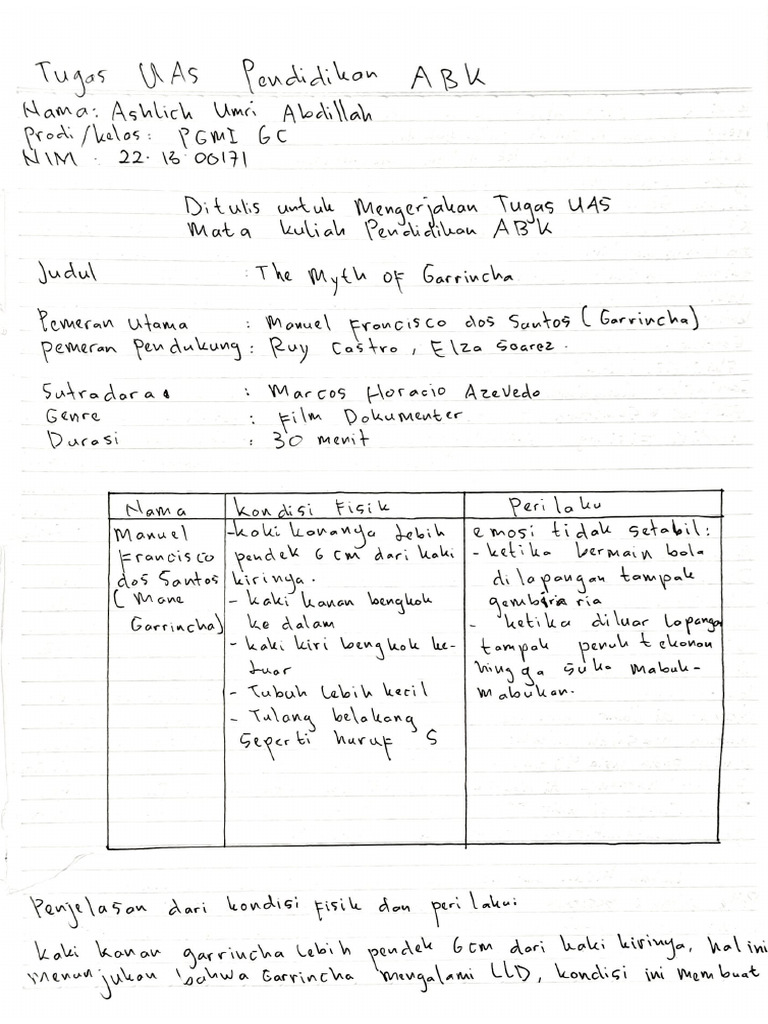 Tugas UAS Pendidikan ABK
Nama: Ashlich Umri Abdillah
Prodi/kelas: PGMI 6C
NIM : 22.13.00171
Ditulis untuk Mengerjakan Tugas UAS
Mata kuliah Pendidikan ABK
Judul : The Myth of Garrincha
Pemeran Utama : Manuel Francisco dos Santos (Garrincha)
Pemeran Pendukung : Ruy Castro, Elza Soarez.
Sutradara : Marcos Horacio Azevedo
Genre : Film Dokumenter
Durasi : 30 menit
Nama
Manuel
Francisco
dos Santos
(Mane
Garrincha)
Kondisi Fisik
-kaki kananya lebih
pendek 6 cm dari kaki
kirinya.
- kaki kanan bengkok
ke dalam
- kaki kiri bengkok ke-
luar
- Tubuh lebih kecil
- Tulang belakang
seperti huruf S
Perilaku
emosi tidak setabil:
- ketika bermain bola
di lapangan tampak
gembira ria
- ketika diluar lapangan
tampak penuh tekanan
hingga suka mabuk-
mabukan.
Penjelasan dari kondisi fisik dan perilaku:
kaki kanan garrincha lebih pendek 6cm dari kaki kirinya, hal ini
menunjukan bahwa Garrincha mengalami LLD, kondisi ini membuat